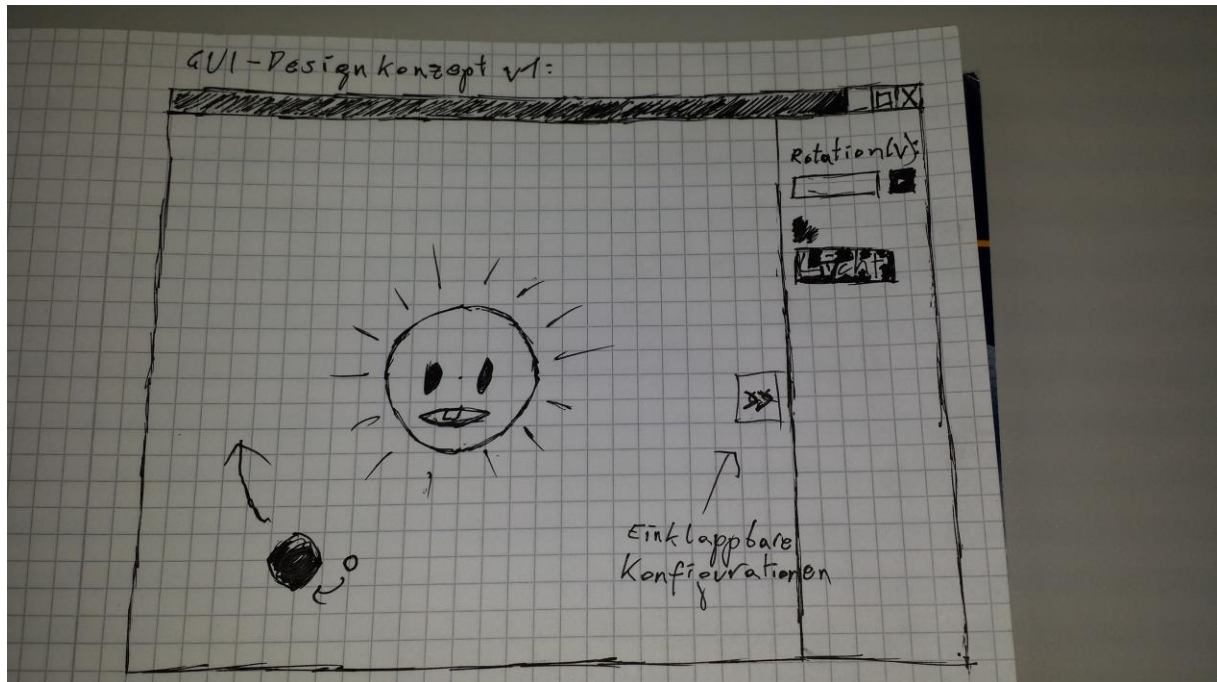 GUI-Designkonzept v1:
Rotation(v):
Licht
>>
Einklappbare
Konfigurationen